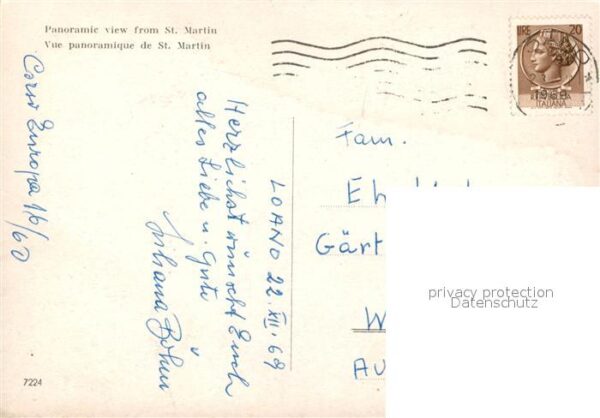 Panoramic view from St. Martin
Vue panoramique de St. Martin
LIRE 20
1968
ITALIANA
Corso Europa 16/60
LOANO 22.XII.68
Herzlichst wünscht Euch
alles Liebe u. Gute
Juliana Böhm
Fam.
Eh
Gärt
W
Au
privacy protection
Datenschutz
7224